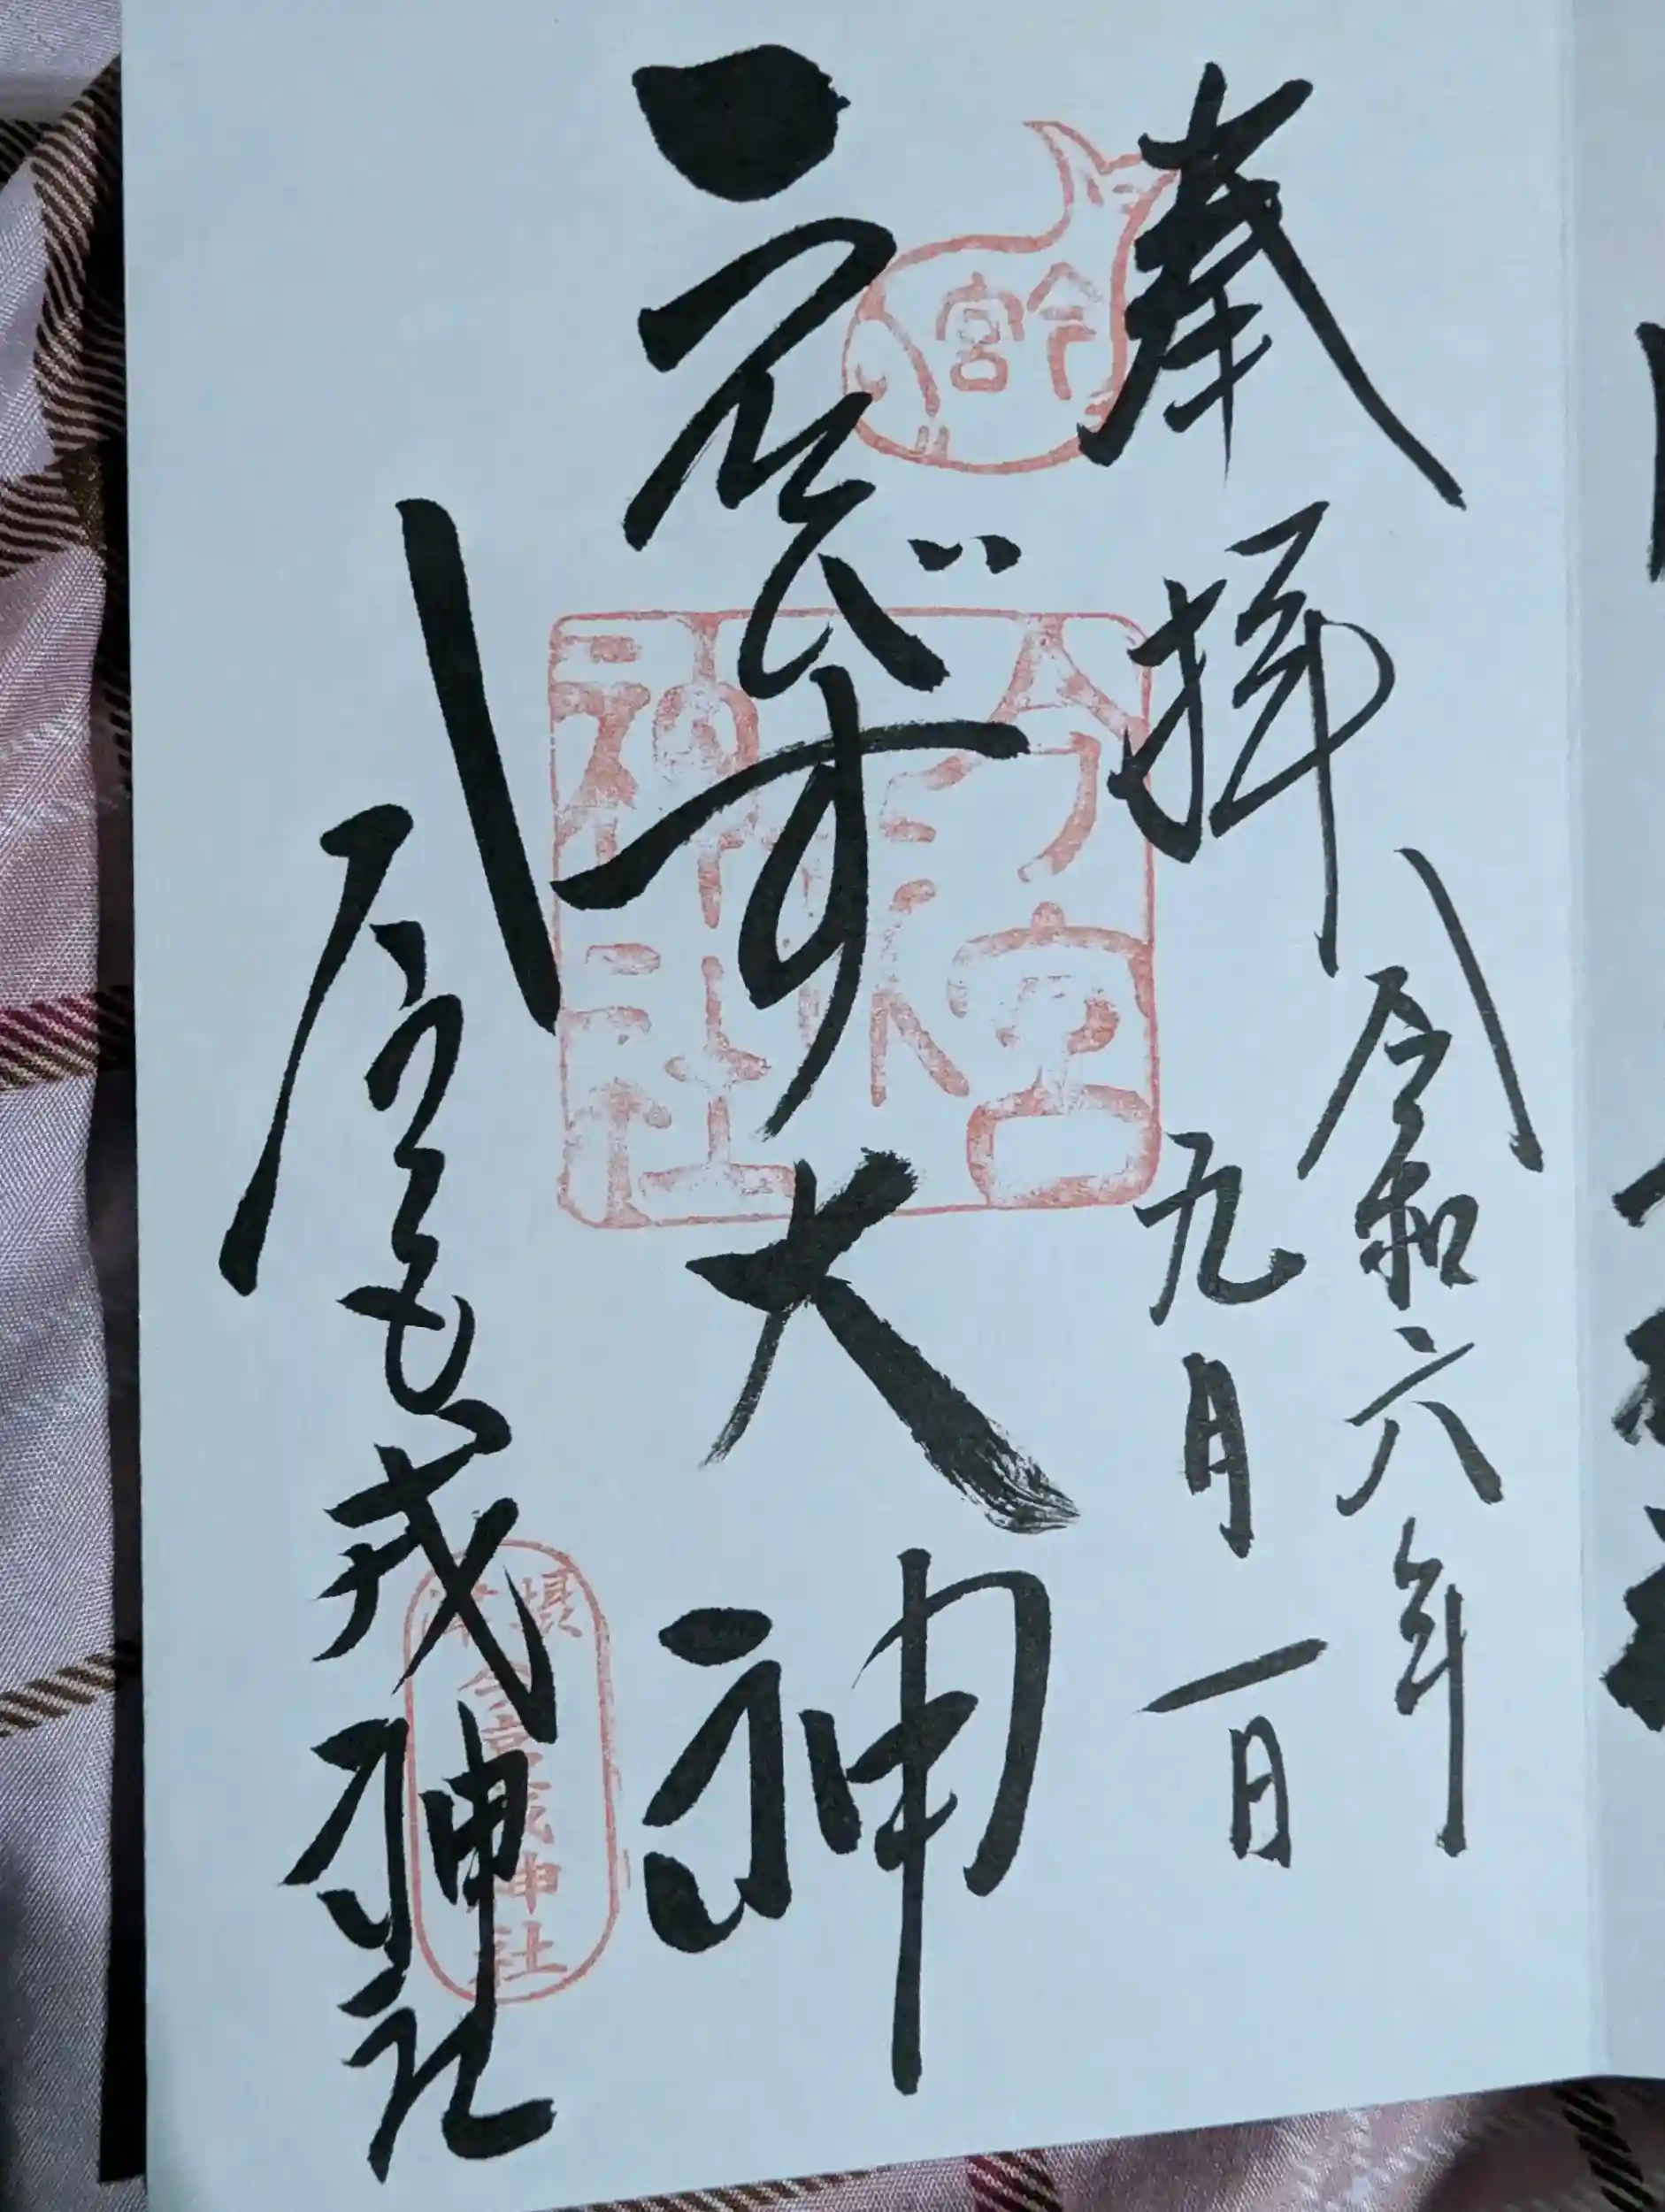 奉拝
令和六年
九月一日
今宮
ゑびす大神
今宮戎神社
今宮戎神社
摂津
今宮戎神社